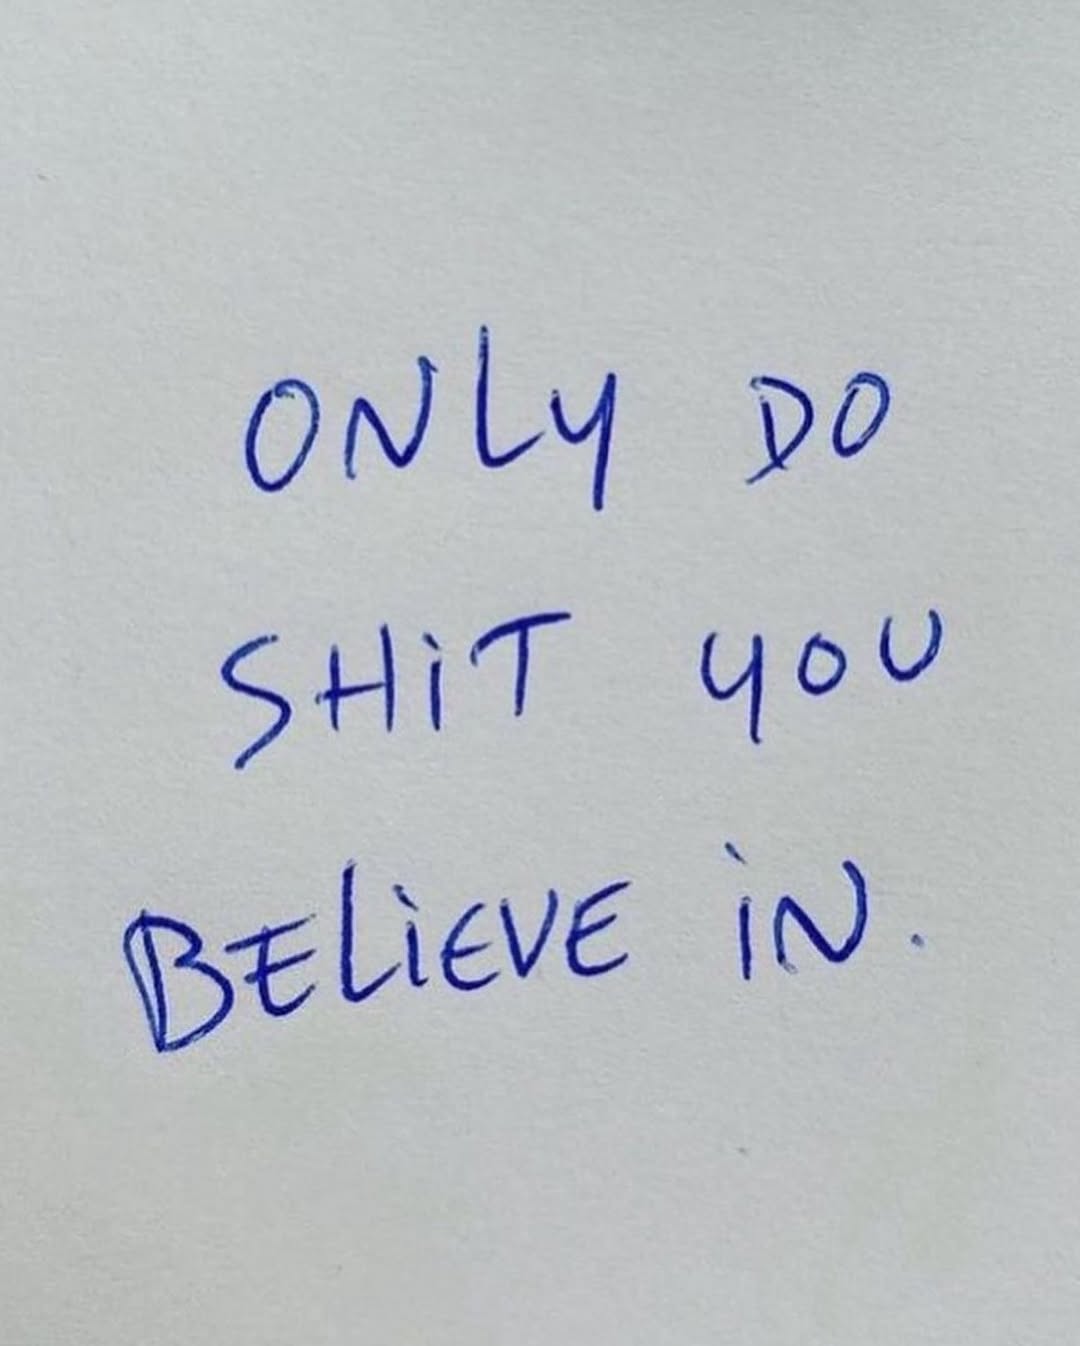 ONLY DO
SHiT YOU
BELiEVE iN.